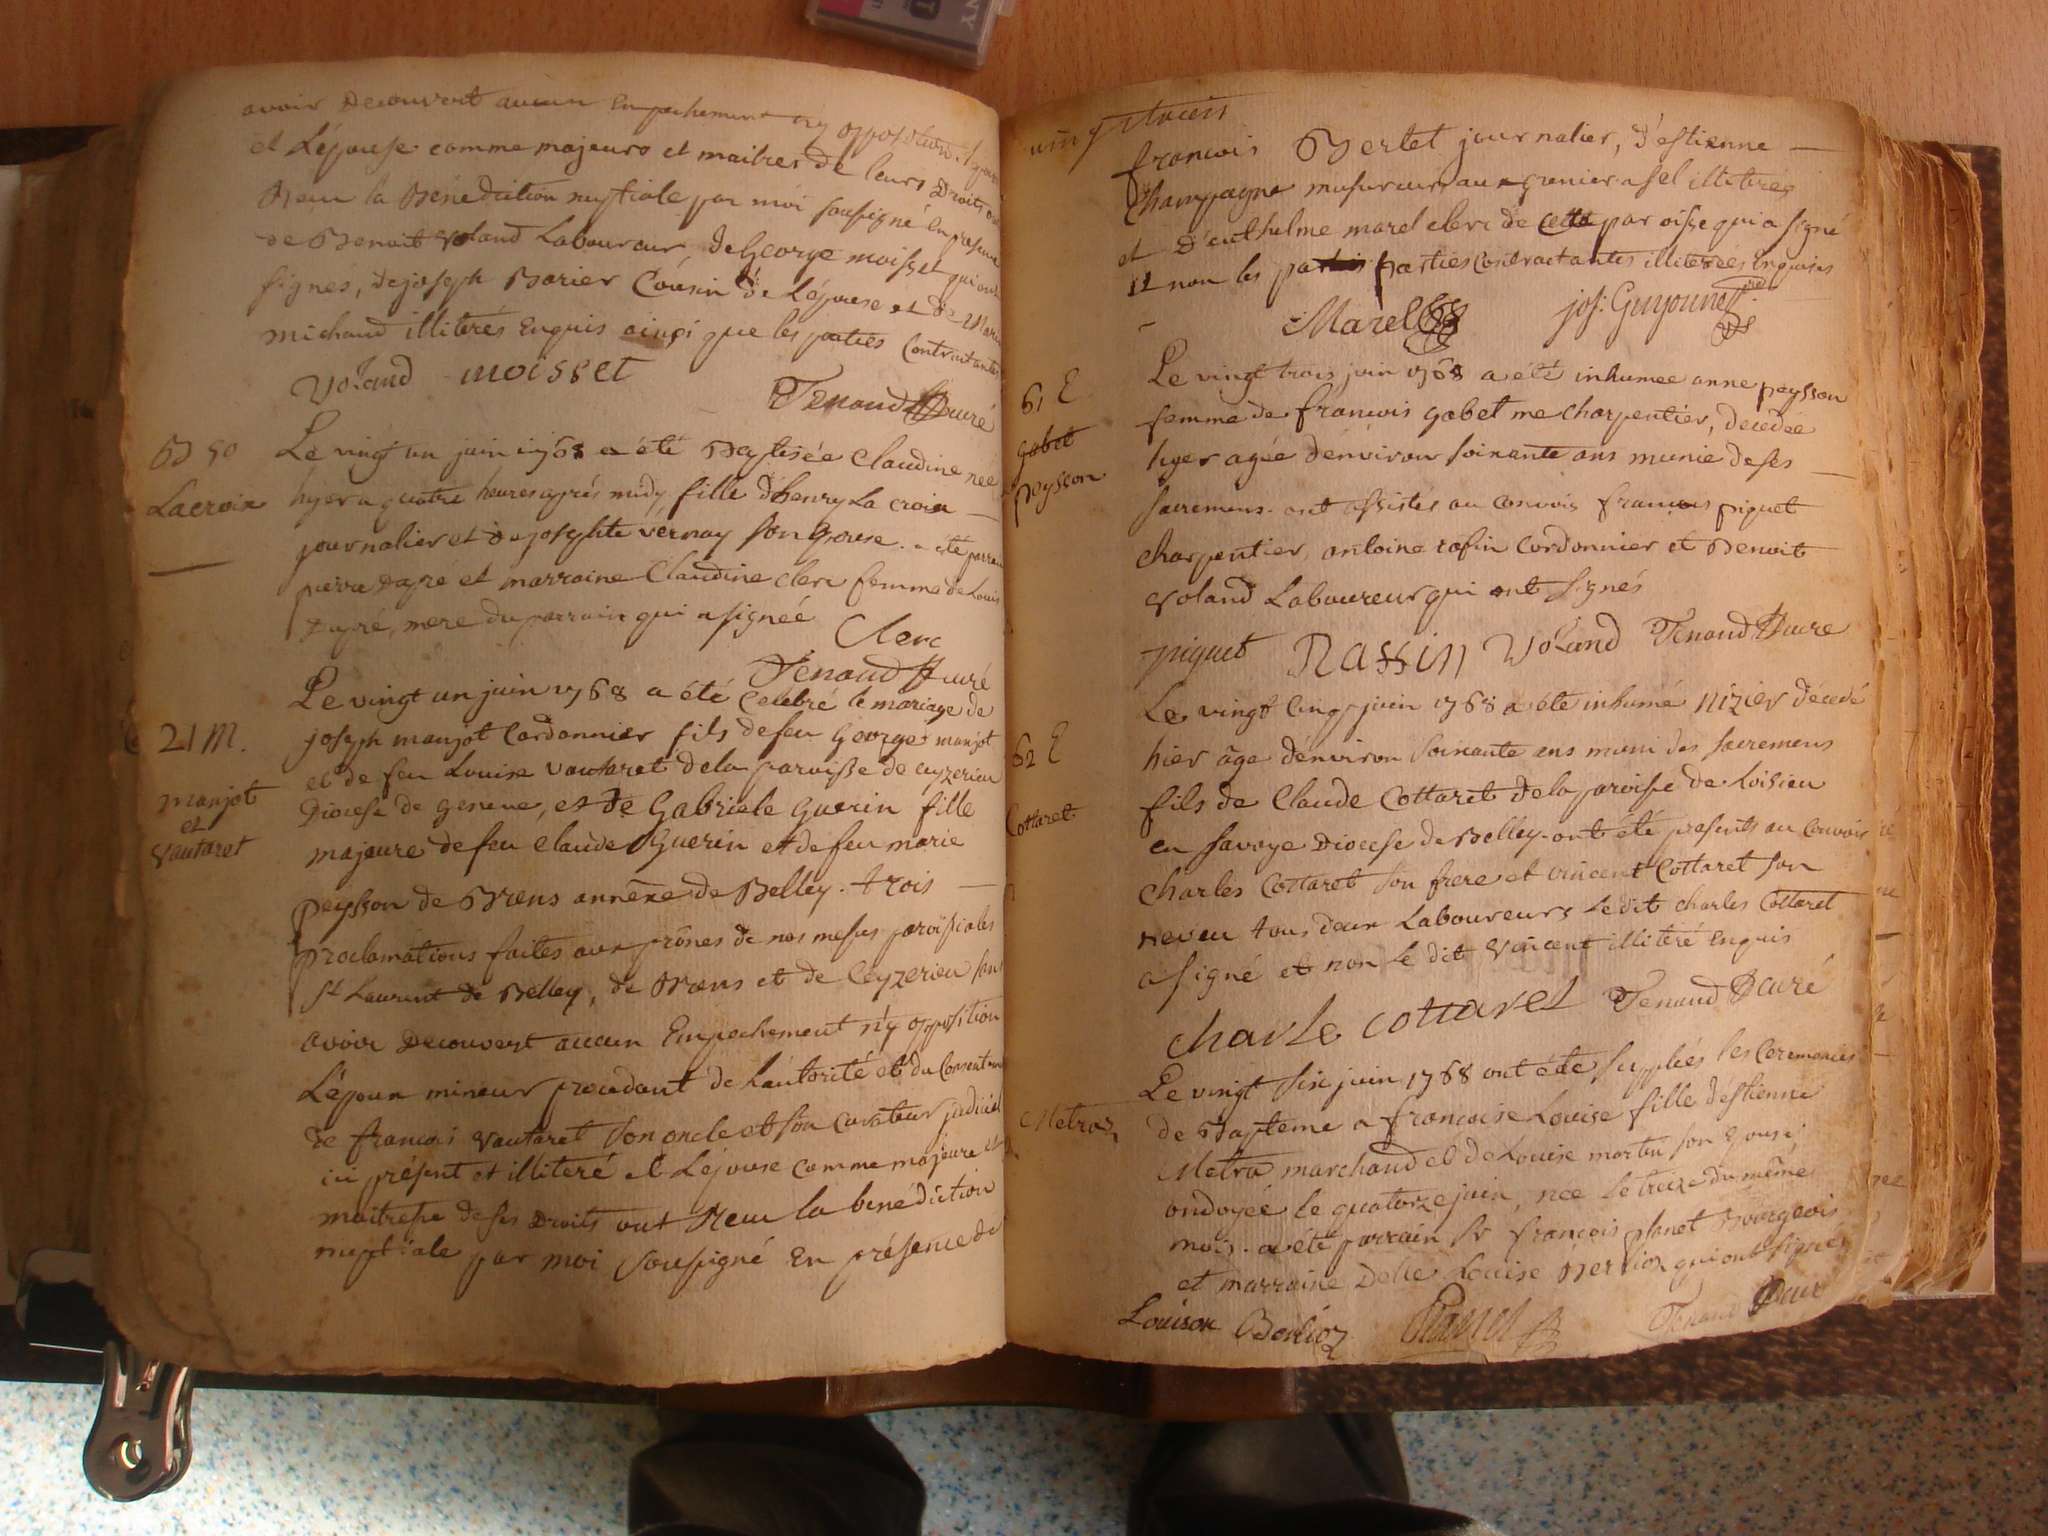 avoir Decouvert aucun Empechement ny opposition
et L'épouse comme majeurs et maitres de leurs Droits ont
Reçu la Bénédiction nuptiale par moi soussigné En presence
de Benoit Voland Laboureur, de George moisset qui ont
signés, de joseph Borier Cousin de L'épouse et de Marie
michaud illiterés Enquis ainsi que les parties Contractantes
Voland moisset
Tenand Curé
B 50
Lacroix
Le vingt un juin 1768 a été Baptisée Claudine née
hyer a quatre heures aprés midy fille d'henry La croix
journalier et de josephte vernay son Epouse. a été parrain
pierre Dapré et marraine Claudine clerc femme de Louis
Dapré, mere du parrain qui a signée
Clerc
Tenand Curé
21 M.
manjot
et
Vautaret
Le vingt un juin 1768 a été Celebré le mariage de
joseph manjot Cordonnier fils de feu George manjot
et de feu Louise vautaret de la paroisse de ceyzerieu
Diocese de geneve, et de Gabriele Guerin fille
majeure de feu claude Guerin et de feu marie
peysson de Brens annéxe de Belley. trois
proclamations faites aux prônes de nos messes paroissiales
St Laurent de Belley, de Brens et de Ceyzerieu sans
avoir Decouvert aucun Empechement n'y opposition
L'époux mineur procedant de L'autorité et du Consentement
de francois Vautaret son oncle et son Curateur judiciel
ici présent et illiteré et L'épouse comme majeure et
maitresse de ses Droits ont Reçu la bénédiction
nuptiale par moi soussigné En présence de
vingt trois
francois Bertet journalier, d'estienne
Champagne mesureur au grenier a sel illiterés
et d'anthelme marel clerc de cette paroisse qui a signé
et non les parties Contractantes illiterées Enquises
Marel jos: Guyonnet
61 E
gabet
peysson
Le vingt trois juin 1768 a été inhumee anne peysson
femme de francois gabet me charpentier, decedée
hyer agée d'environ soixante ans munie de ses
sacremens. ont assistés au convoix francois piguet
charpentier, antoine rasin Cordonnier et Benoit
Voland Laboureur qui ont signés
piguet Rassin Voland Tenand Curé
62 E
Cottaret
Le vingt Cinq juin 1768 a été inhumé Nizier décédé
hier âgé d'environ soixante ans muni des sacremens
fils de Claude Cottaret de la paroisse de Loisieu
en savoye Diocese de Belley. ont été presents au Convoix
Charles Cottaret son frere et vincent Cottaret son
neveu tous deux Laboureurs Le dit charles Cottaret
a signé et non Le dit Vincent illiteré Enquis
charle cottaret Tenand Curé
Metraz
Le vingt six juin 1768 ont été supplées les Ceremonies
de Bapteme a francoise Louise fille d'estienne
Metra marchand et de Louise martin son Epouse,
ondoyée le quatorze juin, née le treize du même
mois. a été parrain Sr françois planet Bourgeois
et marraine Delle Louise Berlioz qui ont signés
Louison Berlioz Planet Tenand Curé